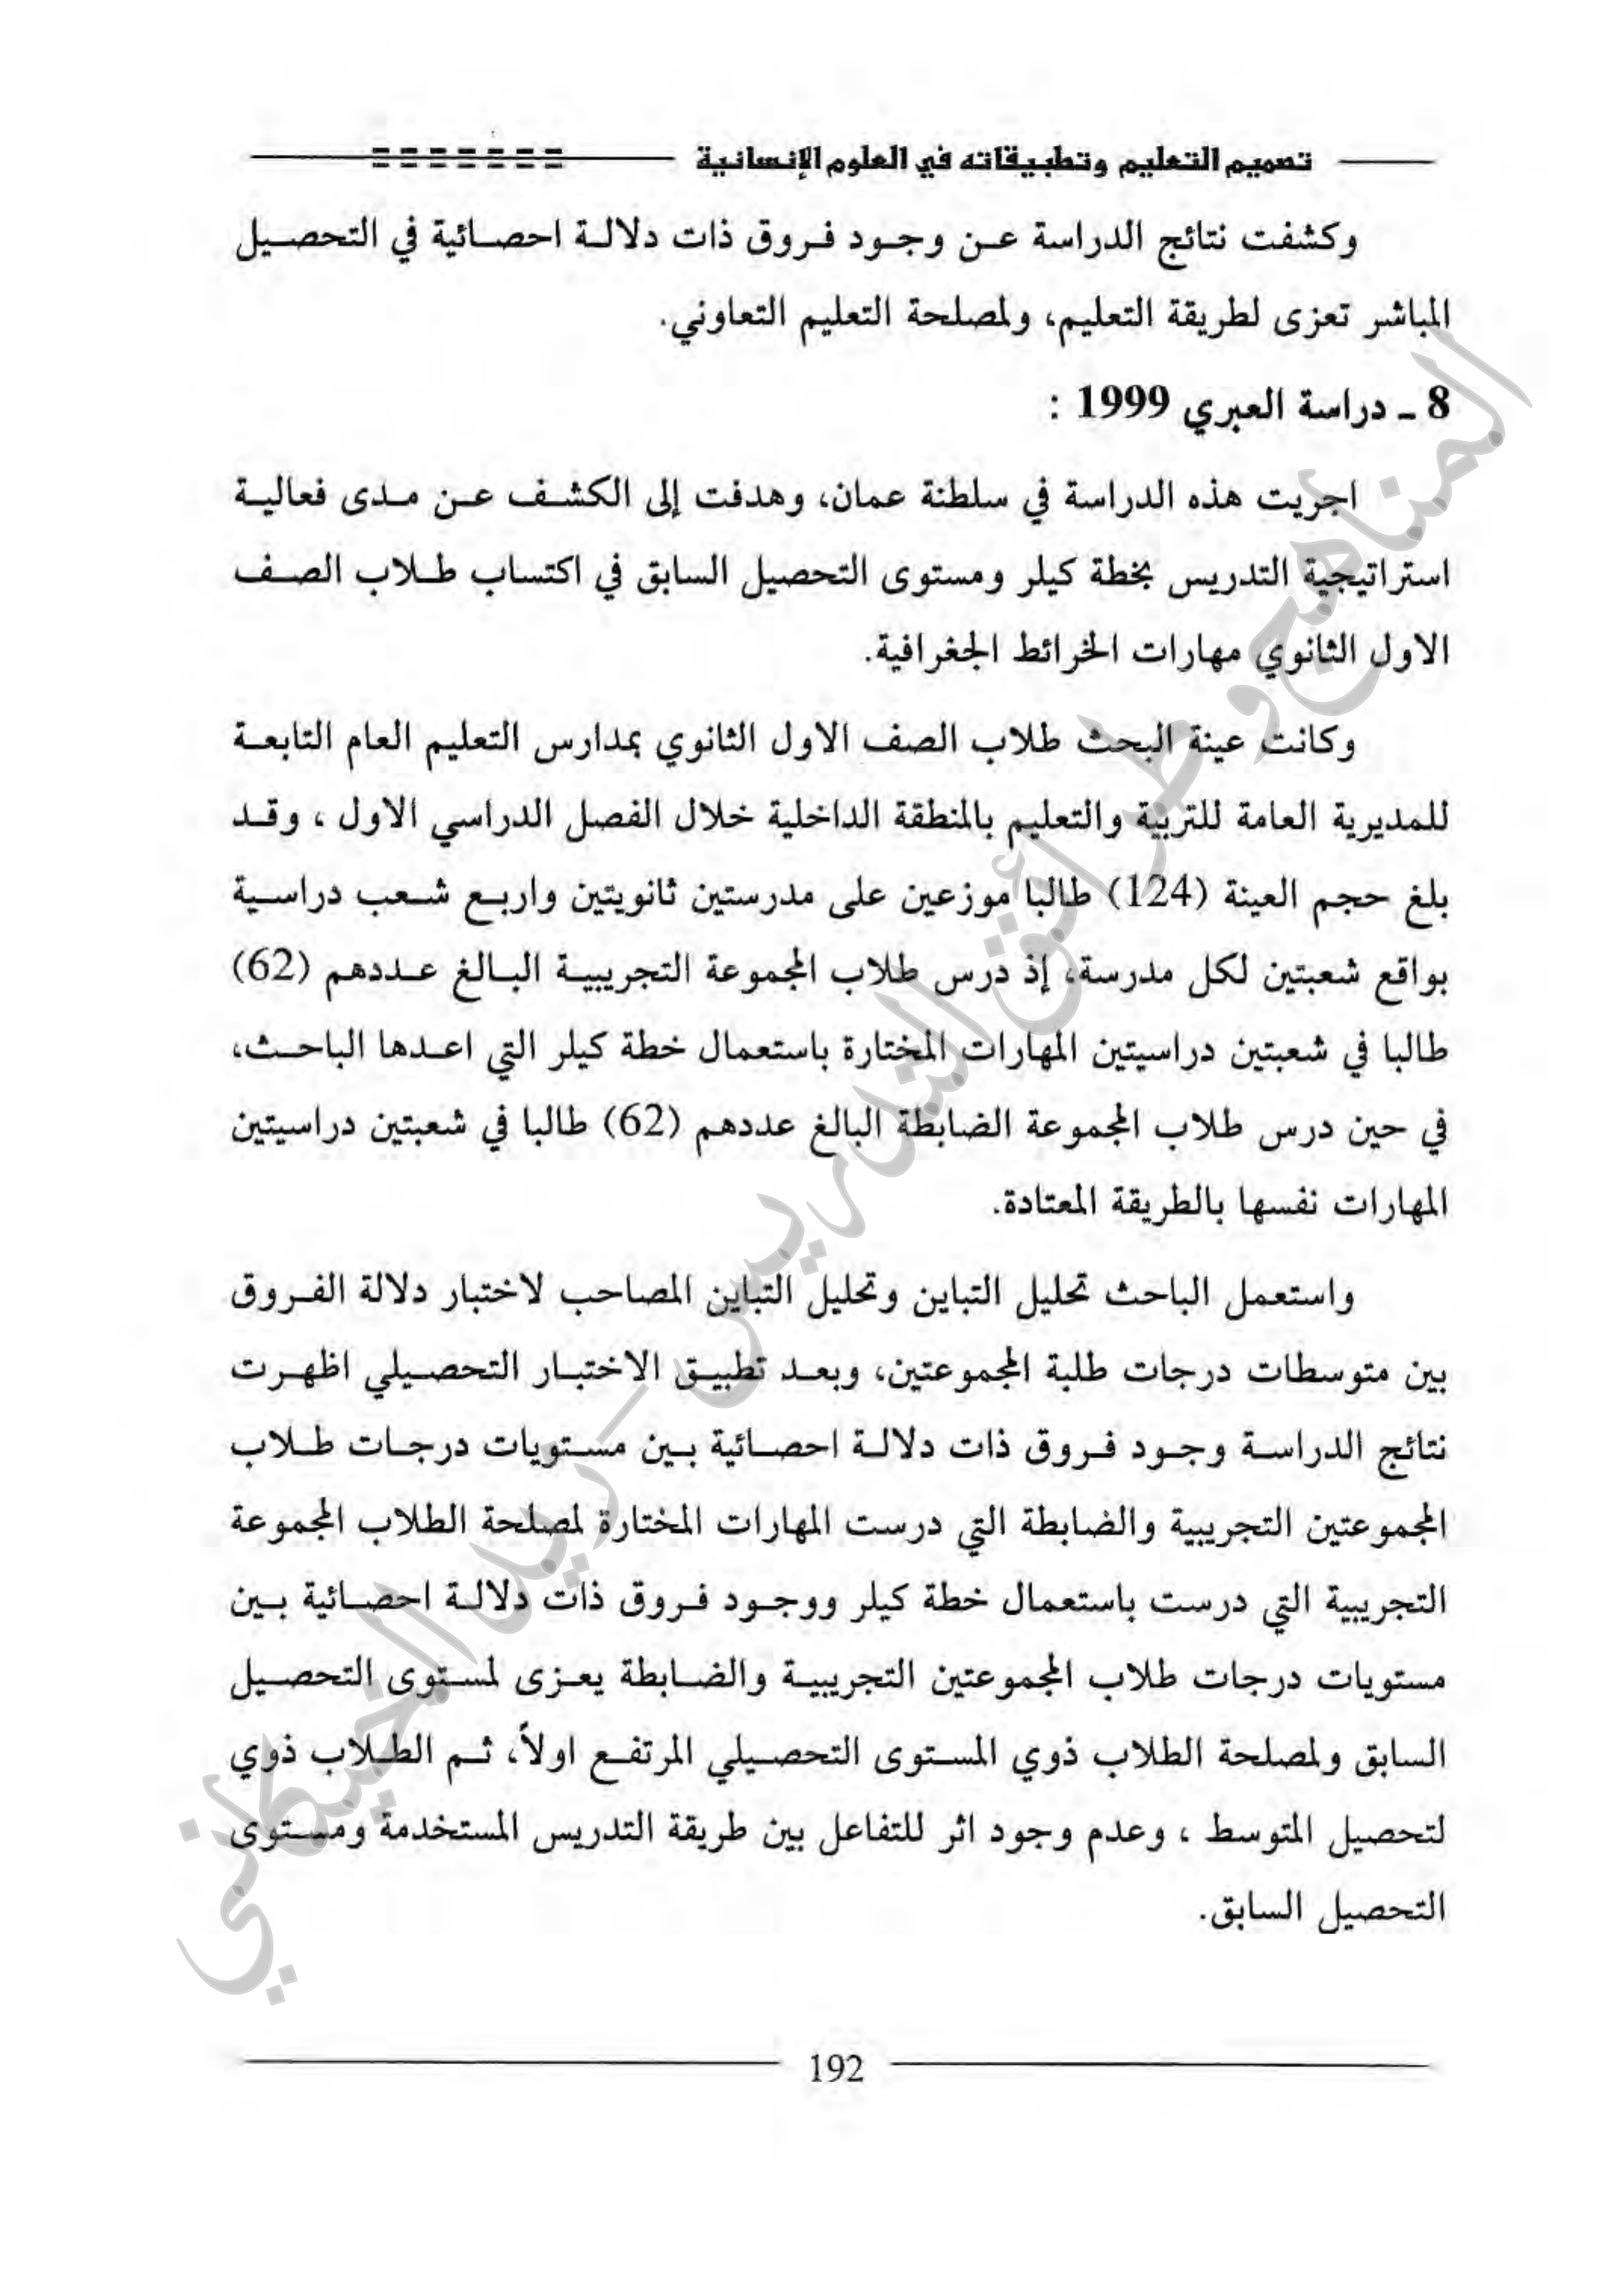 تصميم التعليم وتطبيقاته في العلوم الإنسانية
وكشفت نتائج الدراسة عن وجود فروق ذات دلالة احصائية في التحصيل
المباشر تعزى لطريقة التعليم، ولمصلحة التعليم التعاوني.
8 ـ دراسة العبري 1999 :
اجريت هذه الدراسة في سلطنة عمان، وهدفت إلى الكشف عن مدى فعالية
استراتيجية التدريس بخطة كيلر ومستوى التحصيل السابق في اكتساب طلاب الصف
الاول الثانوي مهارات الخرائط الجغرافية.
وكانت عينة البحث طلاب الصف الاول الثانوي بمدارس التعليم العام التابعة
للمديرية العامة للتربية والتعليم بالمنطقة الداخلية خلال الفصل الدراسي الاول ، وقد
بلغ حجم العينة (124) طالبا موزعين على مدرستين ثانويتين واربع شعب دراسية
بواقع شعبتين لكل مدرسة، إذ درس طلاب المجموعة التجريبية البالغ عددهم (62)
طالبا في شعبتين دراسيتين المهارات المختارة باستعمال خطة كيلر التي اعدها الباحث،
في حين درس طلاب المجموعة الضابطة البالغ عددهم (62) طالبا في شعبتين دراسيتين
المهارات نفسها بالطريقة المعتادة.
واستعمل الباحث تحليل التباين وتحليل التباين المصاحب لاختبار دلالة الفروق
بين متوسطات درجات طلبة المجموعتين، وبعد تطبيق الاختبار التحصيلي اظهرت
نتائج الدراسة وجود فروق ذات دلالة احصائية بين مستويات درجات طلاب
المجموعتين التجريبية والضابطة التي درست المهارات المختارة لمصلحة الطلاب المجموعة
التجريبية التي درست باستعمال خطة كيلر ووجود فروق ذات دلالة احصائية بين
مستويات درجات طلاب المجموعتين التجريبية والضابطة يعزى لمستوى التحصيل
السابق ولمصلحة الطلاب ذوي المستوى التحصيلي المرتفع اولاً، ثم الطلاب ذوي
لتحصيل المتوسط ، وعدم وجود اثر للتفاعل بين طريقة التدريس المستخدمة ومستوى
التحصيل السابق.
192
المناهج وطرائق التدريس –